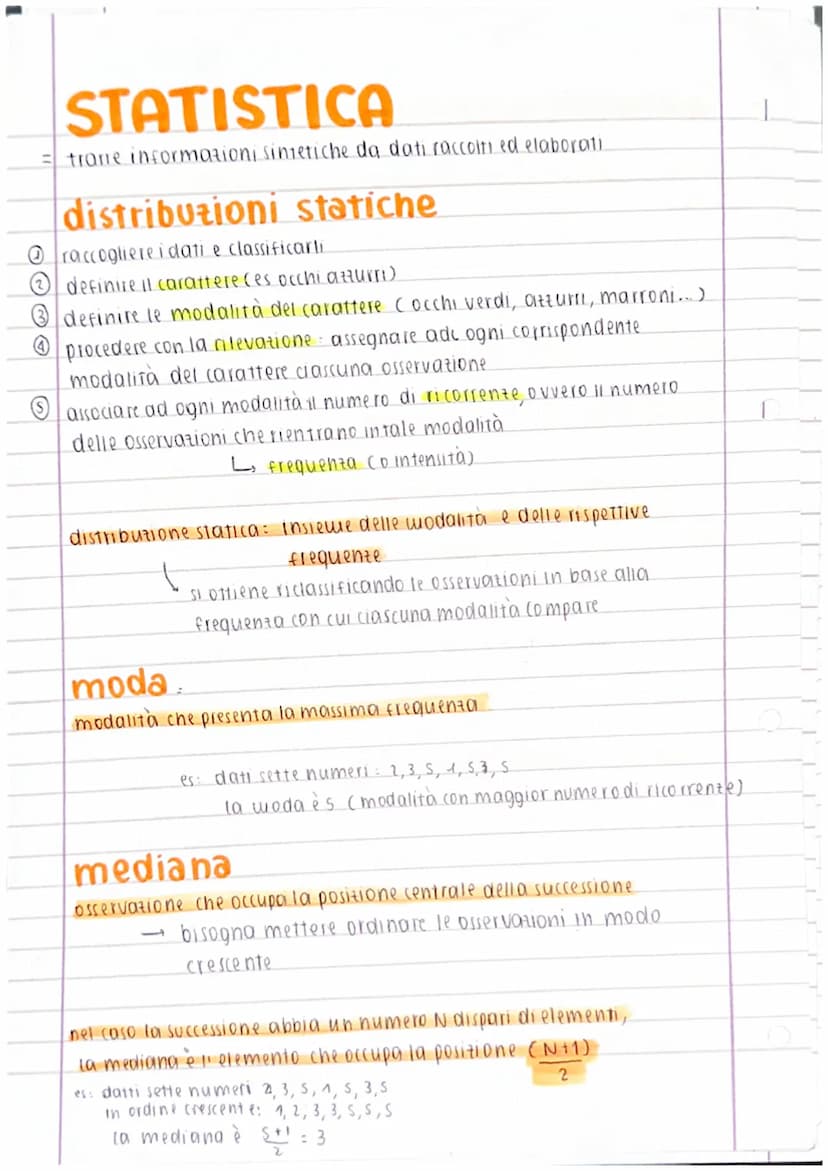 STATISTICA
= trarre informazioni sintetiche da dati raccolti ed elaborati
distribuzioni statiche
① raccogliere i dati e classificarli
② definire il carattere (es occhi azzurri)
③ definire le modalità del carattere (occhi verdi, azzurri, marroni...)
④ procedere con la rilevazione: assegnare ad ogni corrispondente
modalità del carattere ciascuna osservazione
⑤ associare ad ogni modalità il numero di ricorrenze, ovvero il numero
delle osservazioni che rientrano in tale modalità
↳ frequenza (o intensità)
distribuzione statica: insieme delle modalità e delle rispettive
frequenze
si ottiene riclassificando le osservazioni in base alla
frequenza con cui ciascuna modalità compare
moda:
modalità che presenta la massima frequenza
es: dati sette numeri: 2,3,5,1,5,3,5
la moda è 5 (modalità con maggior numero di ricorrenze)
mediana
osservazione che occupa la posizione centrale della successione
→ bisogna mettere ordinare le osservazioni in modo
crescente
nel caso la successione abbia un numero N dispari di elementi,
la mediana è l'elemento che occupa la posizione (N+1)/2
es: datti sette numeri 2,3,5,1,5,3,5
in ordine crescente: 1,2,3,3,5,5,5
la mediana è 5+1/2 = 3